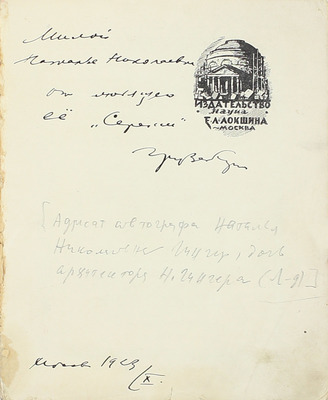 Милой
Наталье Николаевне
от любящего
её „Сережи“
ИЗДАТЕЛЬСТВО
Наука
Е.Л.ЛОКШИНА
~МОСКВА
[Адресат автографа Наталья
Николаевна, дочь
архитектора
Москва 19
X.